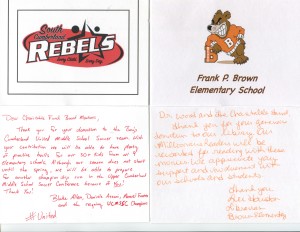 South
Cumberland
REBELS
Every Child, Every Day
Dear Charitable Fund Board Members,
Thank you for your donation to the
Cumberland United Middle School Soccer team. With
your contribution we will be able to have plenty
of practice balls for our 50+ kids from
Elementary schools. Although our season does not start
until the spring, we will be able to prepare
for another championship run in the Upper Cumberland
Middle School Soccer Conference because of You!
Thank You!
and the reigning UCMSSC Champions
#United
B
Frank P. Brown
Elementary School
and the Charitable Board,
Thank you for your generous
donation to our library. Our
readers will be
rewarded for reading with these
We appreciate your
support and
our schools and students.
Thank you,
Librarian
Brown Elementary